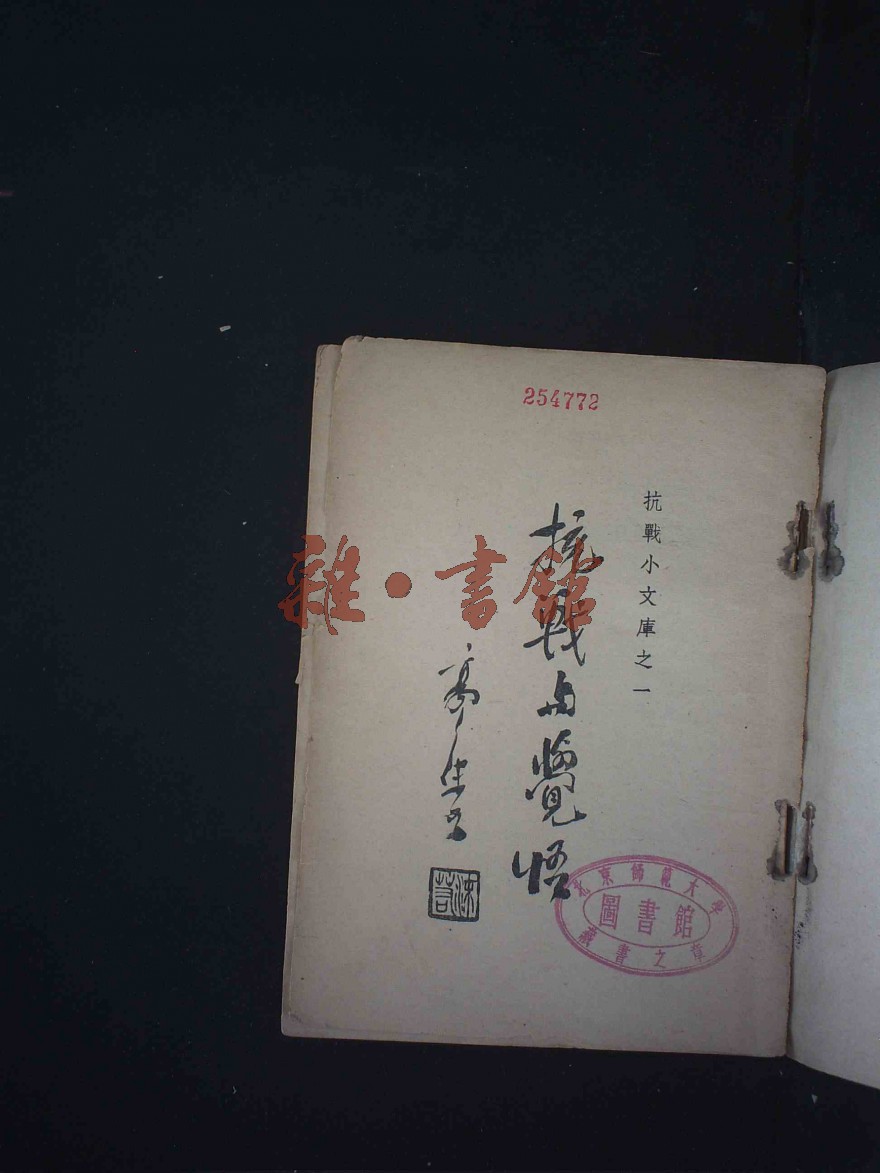 254772
抗戰小文庫之一
抗戰与覺悟
沫若
北京師範大學
圖書館
藏書之章
雜·書館